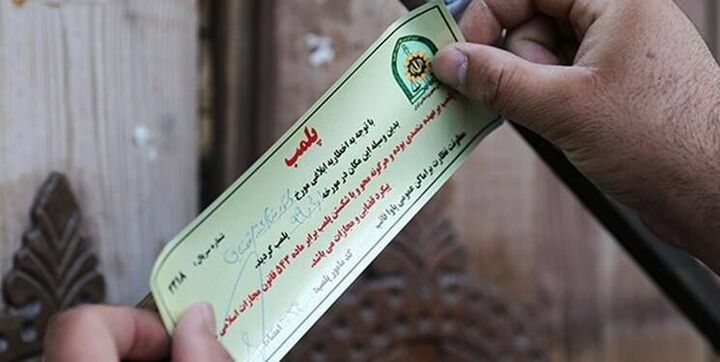 پلمب
با توجه به اخطاریه ابلاغی مورخ
بدین وسیله این مکان در مورخه
پلمب گردید.
بر عهده متصدی بوده و هرگونه محو و یا شکستن پلمب برابر ماده ۵۴۳ قانون مجازات اسلامی
پیگرد قضایی و مجازات می باشد.
معاونت نظارت بر اماکن عمومی
کد مامور پلمب:
امضاء
شماره سریال:
۲۲۱۸